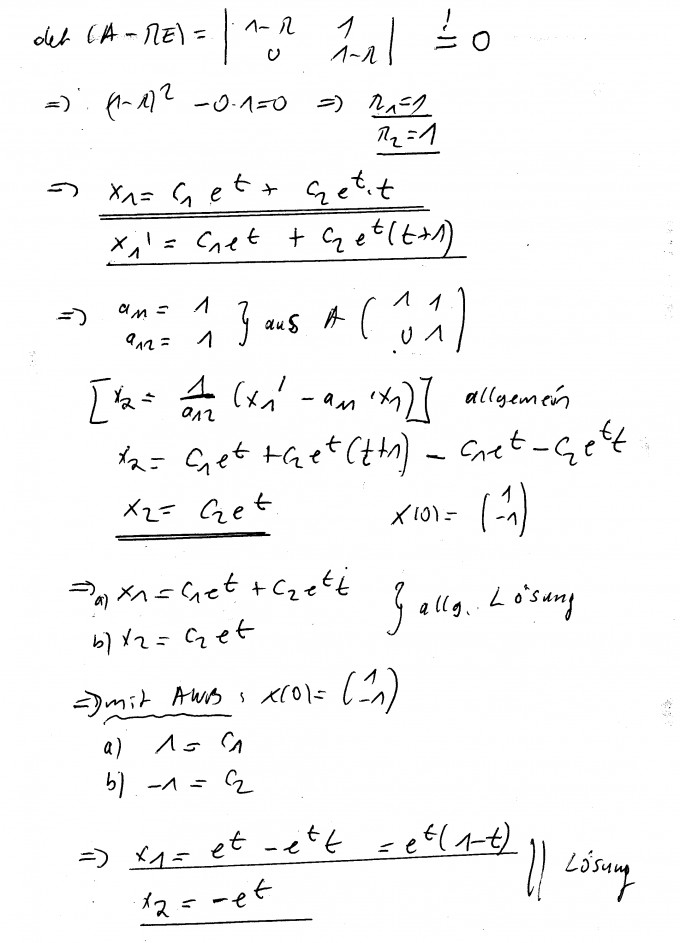 det (A - λE) = | 1-λ 1 | != 0
| 0 1-λ |
=> (1-λ)² - 0·1=0 => λ1=1
λ2=1
=> x1 = c1 e^t + c2 e^t·t
x1' = c1 e^t + c2 e^t (t+1)
=> a11 = 1
a12 = 1 } aus A ( 1 1 / 0 1 )
[x2 = 1/a12 (x1' - a11 · x1)] allgemein
x2 = c1 e^t + c2 e^t (t+1) - c1 e^t - c2 e^t t
x2 = c2 e^t x(0) = ( 1 / -1 )
=> a) x1 = c1 e^t + c2 e^t t
b) x2 = c2 e^t } allg. Lösung
=> mit AWB : x(0) = ( 1 / -1 )
a) 1 = c1
b) -1 = c2
=> x1 = e^t - e^t t = e^t (1-t)
x2 = -e^t || Lösung